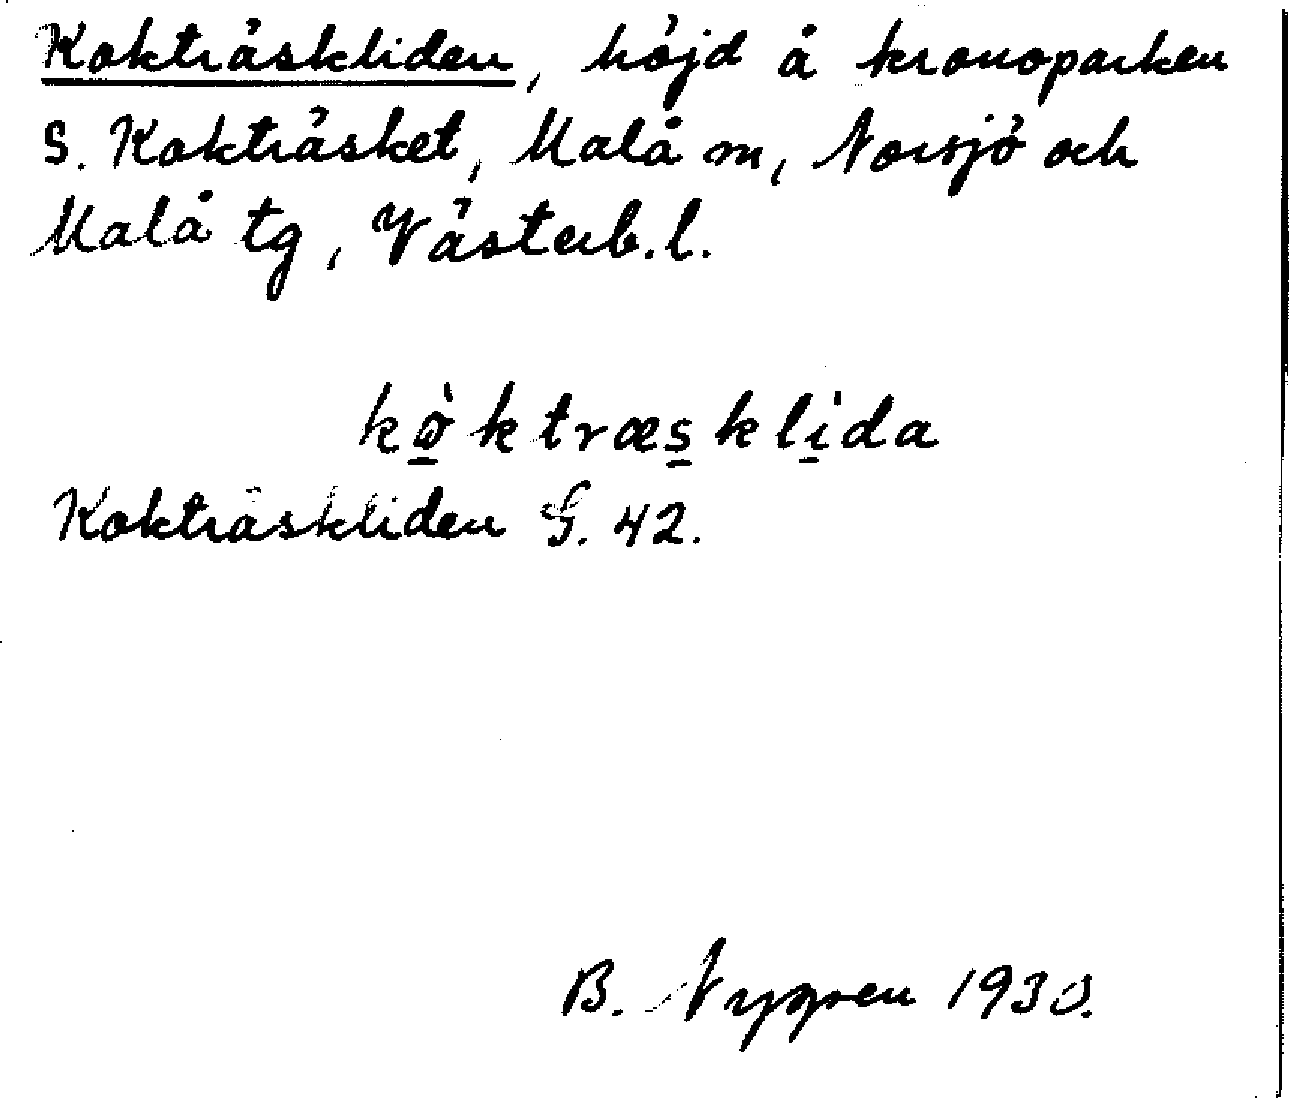 Kokträskliden, höjd å kronoparken
S. Kokträsket, Malå m, Norsjö och
Malå tg, Västerb.l.
kø̱̀ktræs̱kli̱da
Kokträskliden G. 42.
B. Nygren 1930.